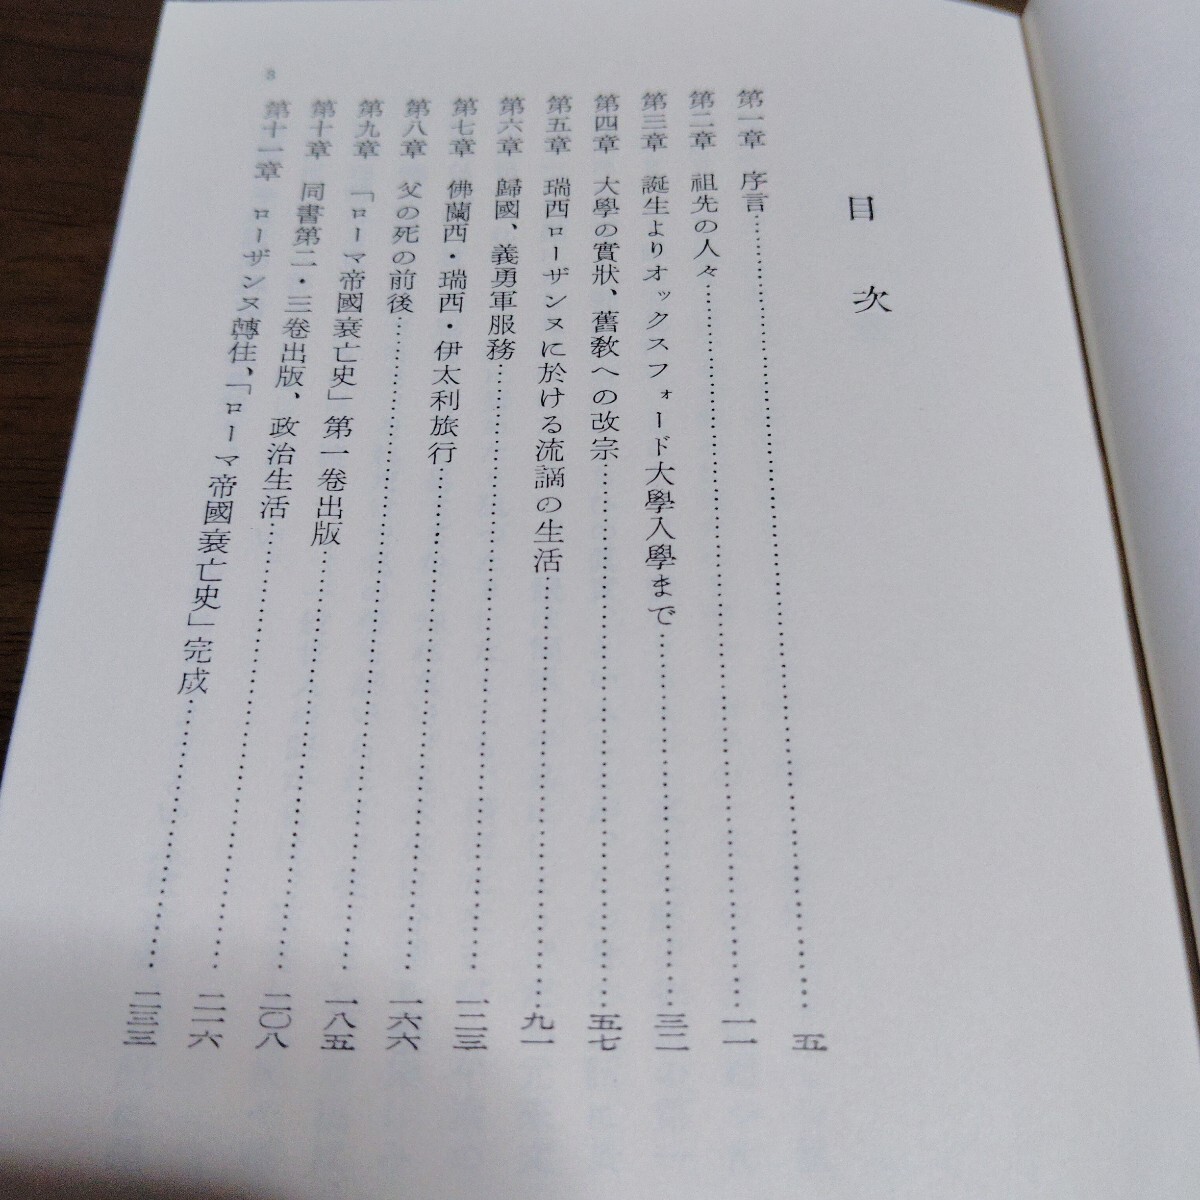 目次
第一章 序言……五
第二章 祖先の人々……一一
第三章 誕生よりオックスフォード大學入學まで……三二
第四章 大學の實狀、舊教への改宗……五七
第五章 瑞西ローザンヌに於ける流謫の生活……九一
第六章 歸國、義勇軍服務……一二三
第七章 佛蘭西・瑞西・伊太利旅行……一六六
第八章 父の死の前後……一八五
第九章 「ローマ帝國衰亡史」第一卷出版……二〇八
第十章 同書第二・三卷出版、政治生活……二一六
第十一章 ローザンヌ轉住、「ローマ帝國衰亡史」完成……二三三
3